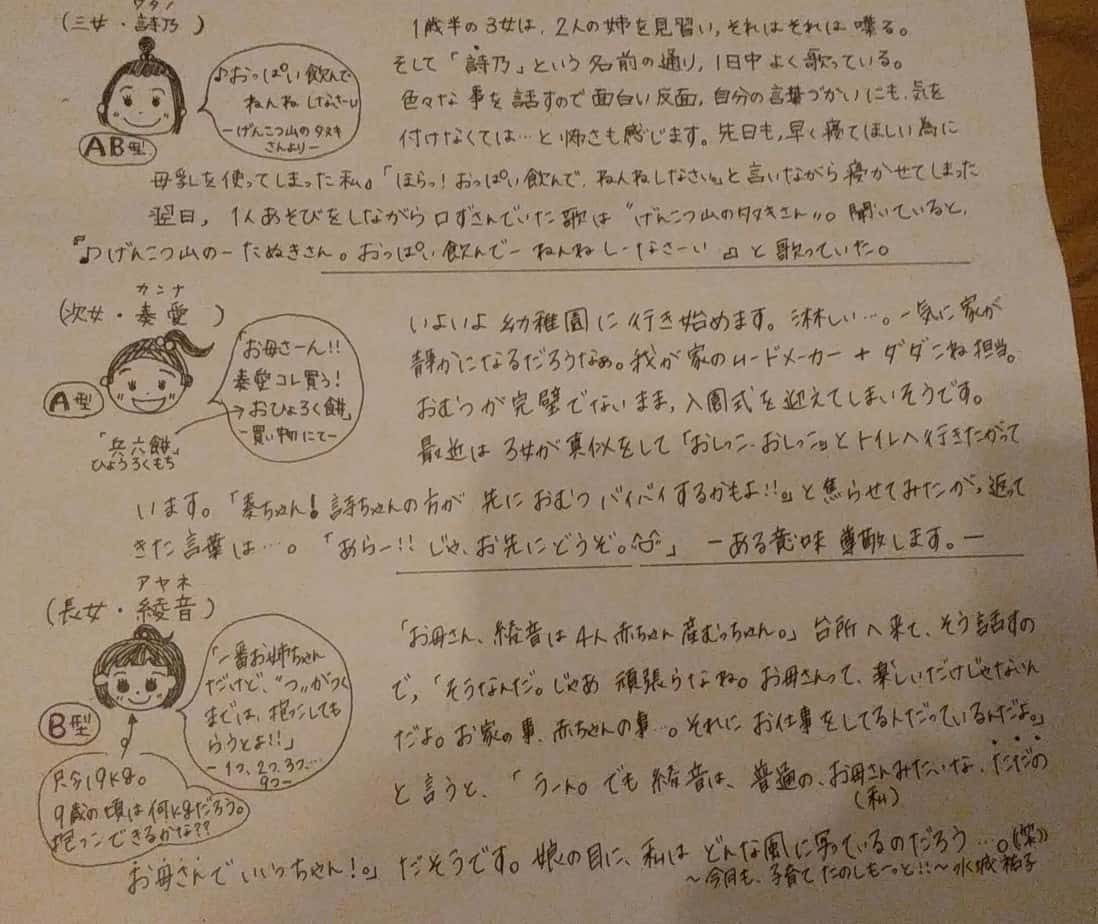 (三女・詩乃)
ウタノ
♪おっぱい飲んで
ねんねしなさーい
ーげんこつ山のタヌキ
さんよりー
AB型
1歳半の3女は、2人の姉を見習い、それはそれは喋る。
そして「詩乃」という名前の通り、1日中よく歌っている。
色々な事を話すので面白い反面、自分の言葉づかいにも、気を
付けなくては…と怖さも感じます。先日も、早く寝てほしい為に
母乳を使ってしまった私。「ほらっ!おっぱい飲んで、ねんねしなさい。」と言いながら寝かせてしまった
翌日、1人あそびをしながら口ずさんでいた歌は“げんこつ山のタヌキさん”。聞いていると、
『♪げんこつ山のーたぬきさん。おっぱい飲んでーねんねしーなさーい♪』と歌っていた。
カンナ
(次女・奏愛)
「お母さーん!!
奏愛コレ買う!
おひょろく餅」
ー買い物にてー
A型
「兵六餅」
ひょうろくもち
いよいよ幼稚園に行き始めます。淋しい…。一気に家が
静かになるだろうなぁ。我が家のムードメーカー+ダダこね担当。
おむつが完璧でないまま、入園式を迎えてしまいそうです。
最近は3女が真似をして「おしっこ・おしっこ」とトイレへ行きたがって
います。「奏ちゃん!詩ちゃんの方が先におむつバイバイするかもよ!!」と焦らせてみたが、返って
きた言葉は…。「あらー!!じゃ、お先にどうぞ。」ーある意味尊敬します。ー
アヤネ
(長女・綾音)
「一番お姉ちゃん
だけど、“つ”がつく
までは、抱っこしても
らうとよ!!」
ー1つ、2つ、3つ…
9つー
B型
只今19kg。
9歳の頃は何kgだろう。
抱っこできるかな??
「お母さん、綾音は4人赤ちゃん産むっちゃん。」台所へ来て、そう話すの
で、「そうなんだ。じゃあ頑張らなね。お母さんって、楽しいだけじゃないん
だよ。お家の事、赤ちゃんの事…。それにお仕事をしてる人だっているんだよ。」
と言うと、「うーん。でも綾音は、普通の、お母さんみたいな、ただの
(私)
お母さんでいいっちゃん!。」だそうです。娘の目に、私はどんな風に写っているのだろう…。(笑)
～今月も、子育てたのしもーっと!!～水城祐子